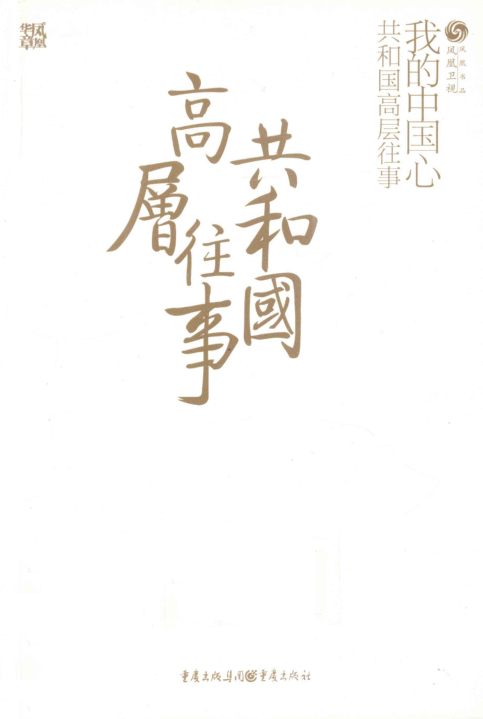 凤凰
华章
凤凰书品
凤凰卫视
我的中国心
共和国高层往事
共和國
高層往事
重庆出版集团 重庆出版社